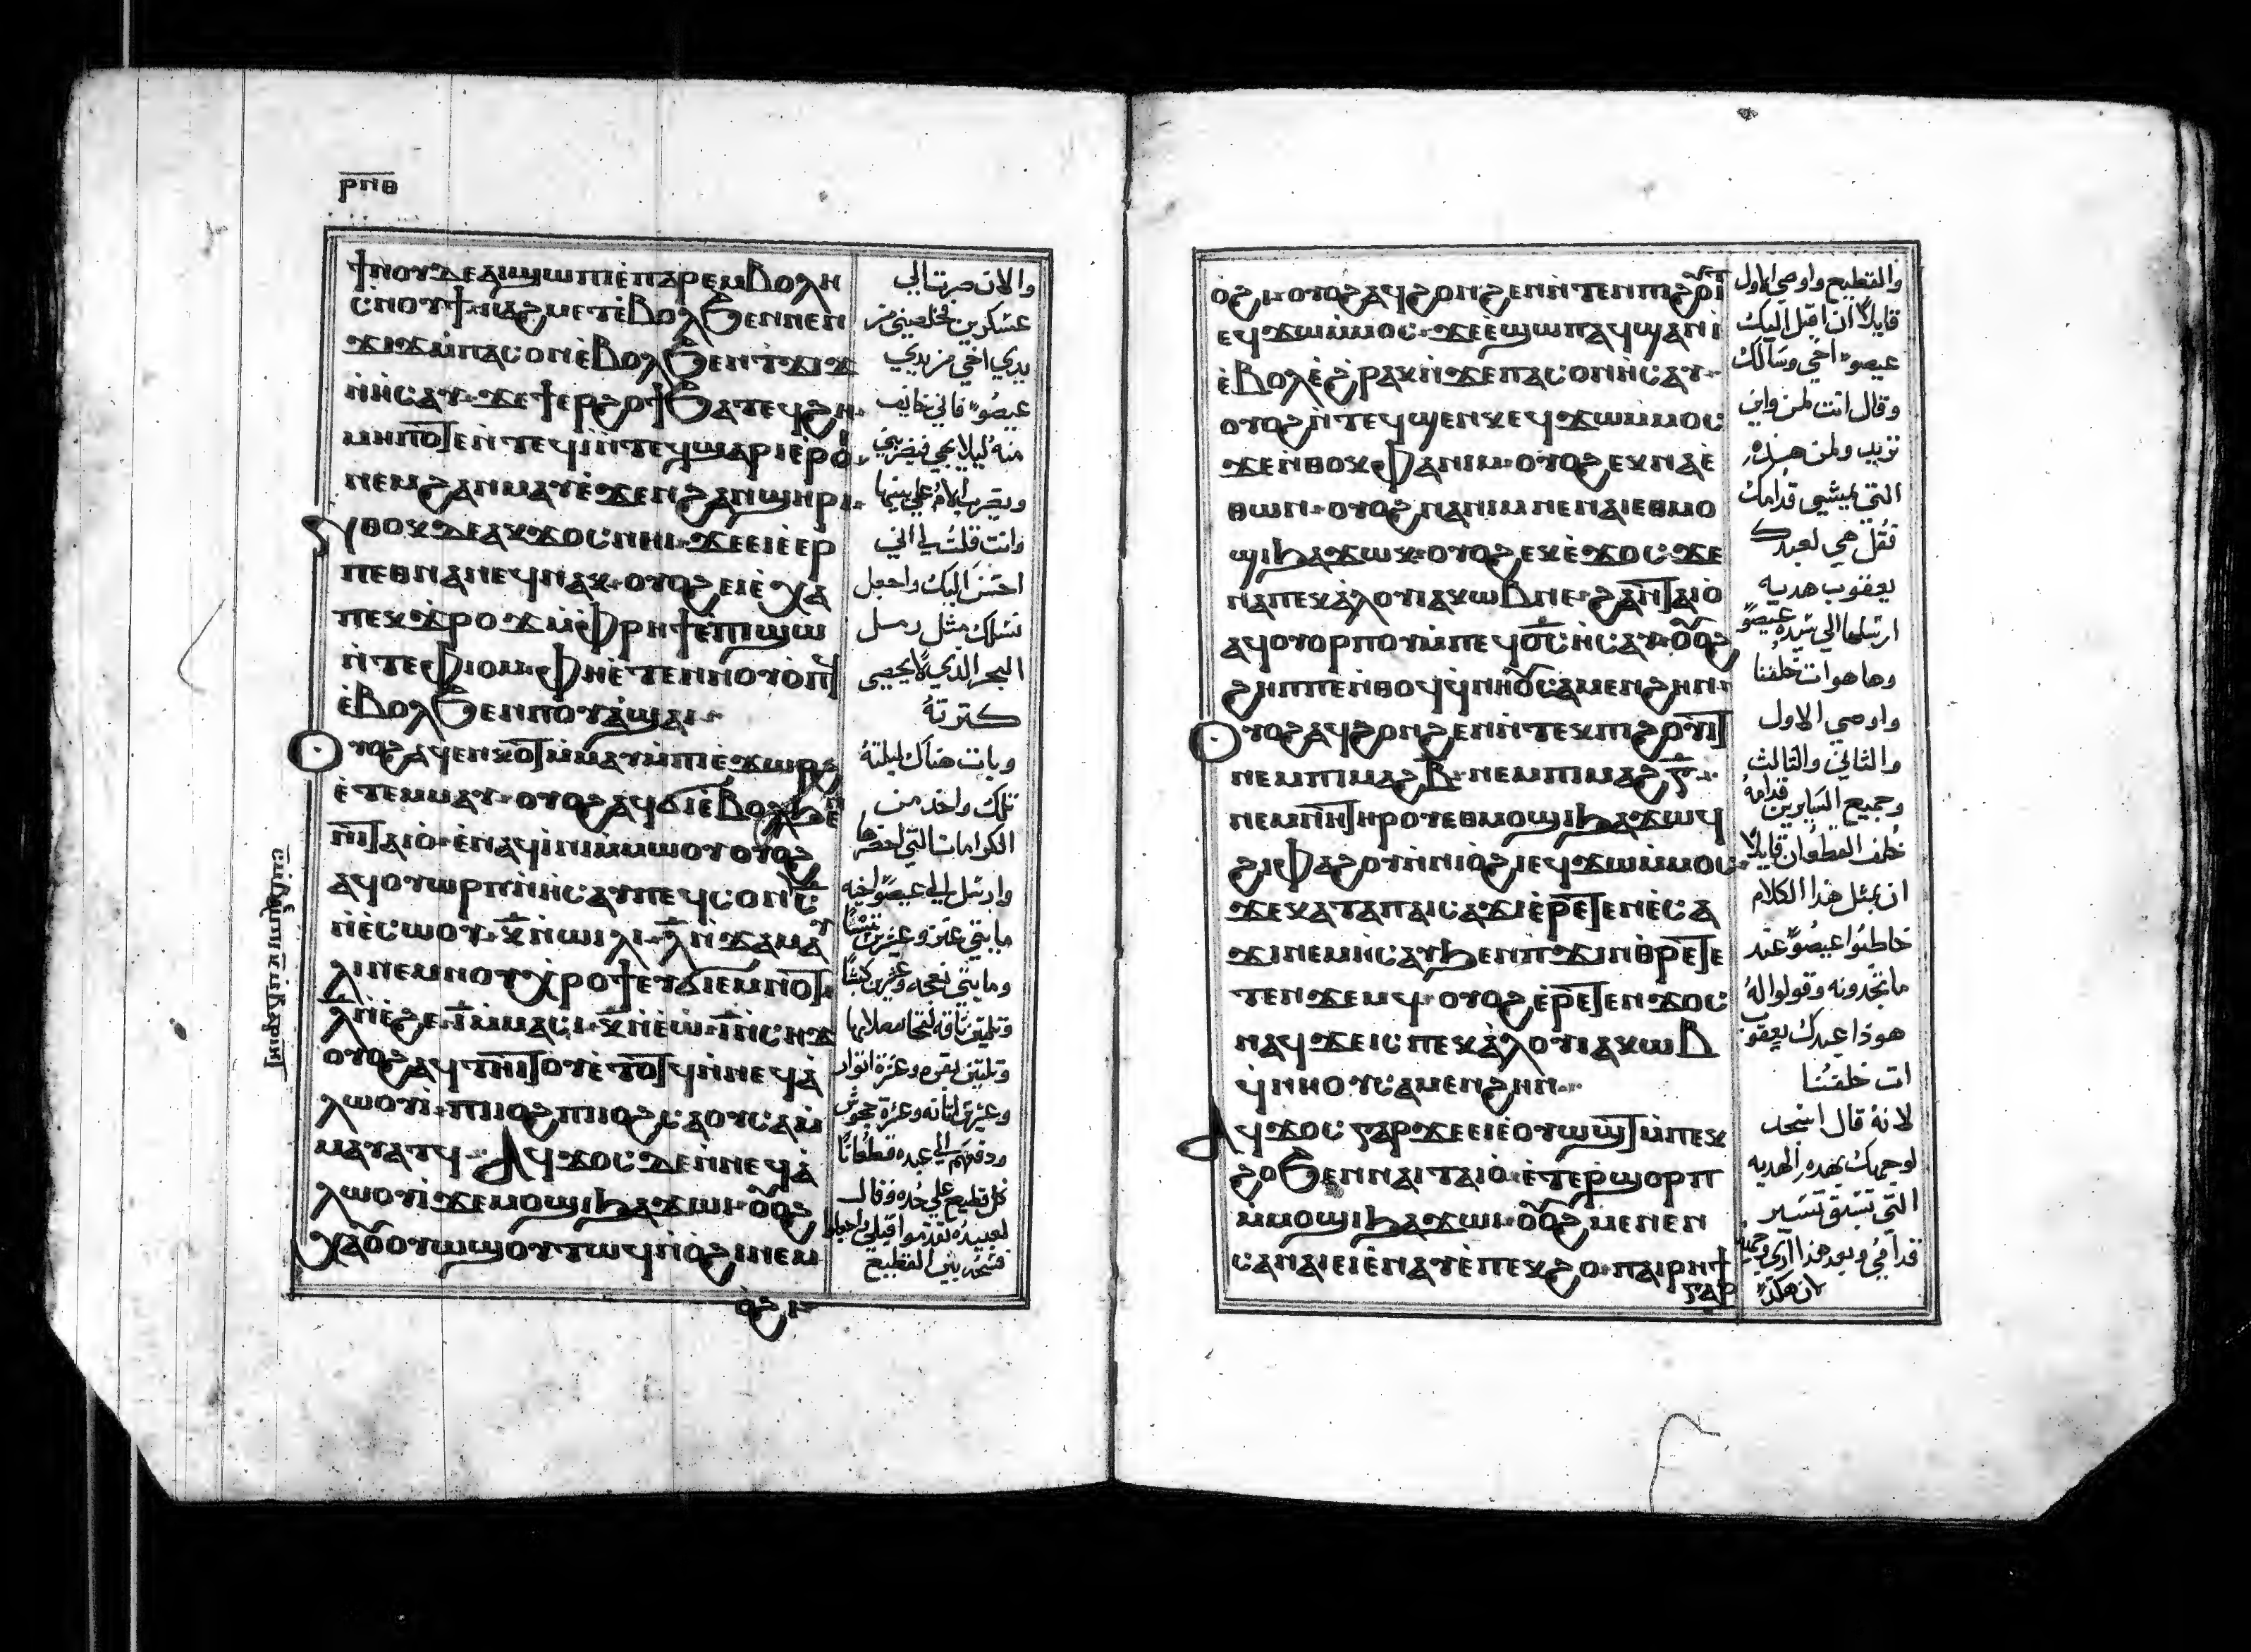 ⲣⲡⲑ
ϯⲛⲟⲩⲇⲉⲁⲓϣⲱⲡⲓⲉ̇ⲡⲁⲣⲉⲙⲃⲟⲗⲏ
ⲥ̇ⲛⲟⲩϯ·ⲛⲁϩⲙⲉⲧⲉ̇ⲃⲟⲗϧⲉⲛⲛⲉⲛ
ϫⲓϫⲙ̇ⲡⲁⲥⲟⲛⲉ̇ⲃⲟⲗϧⲉⲛⲧ̇ϫⲓϫ
ⲛ̇ⲏ̇ⲥⲁⲩ·ϫⲉϯⲉⲣϩⲟϯϧⲁⲧⲉϥϩⲏ·
ⲙⲏⲡⲟⲧⲉⲛ̇ⲧⲉϥⲓ̇ⲛ̇ⲧⲉϥϣⲁⲣⲓⲉ̇ⲣⲟⲓ·
ⲛⲉⲙϩⲁⲛⲙⲁⲩⲉ̇ϫⲉⲛϩⲁⲛϣⲏⲣⲓ·
ⲛ̇ⲑⲟⲕⲇⲉⲁⲕϫⲟⲥⲛⲏⲓ·ϫⲉⲉⲓⲉ̇ⲉⲣ
ⲡⲉⲑⲛⲁⲛⲉϥⲛⲁⲕ·ⲟⲩⲟϩⲉⲓⲉ̇ⲭⲁ
ⲡⲉⲕϫ̇ⲣⲟϫⲙ̇ⲫ̇ⲣⲏϯⲙ̇ⲡⲓϣⲱ
ⲛ̇ⲧⲉⲫ̇ⲓⲟⲙ·ⲫⲏⲉ̇ⲧⲉⲛⲛⲟⲩⲟ̇ⲡϥ
ⲉ̇ⲃⲟⲗϧⲉⲛⲡⲟⲩⲁ̇ϣⲁⲓ·
ⲟⲩⲟϩⲁϥⲉⲛⲕⲟⲧⲙ̇ⲙⲁⲩⲙ̇ⲡⲓⲉ̇ϫⲱⲣϩ
ⲉ̇ⲧⲉⲙⲙⲁⲩ·ⲟⲩⲟϩⲁϥϭⲓⲉ̇ⲃⲟⲗϧⲉⲛ
ⲛⲓⲧⲁⲓⲟ̇·ⲉ̇ⲛⲁϥⲓ̇ⲛⲓⲙ̇ⲙⲱⲟⲩⲟⲩⲟϩ
ⲁϥⲟⲩⲱⲣⲡⲛ̇ⲏ̇ⲥⲁⲩⲡⲉϥⲥⲟⲛ·ⲥ̅
ⲛ̇ⲉ̇ⲥⲱⲟⲩ·ⲕ̅ⲛ̇ⲱⲓⲗⲓ·ⲗ̅ⲛ̇ϫⲁⲙⲁⲩ
ⲗⲓⲛⲉⲙⲛⲟⲩⲭ̇ⲣⲟϯⲉⲩϭⲓⲉⲙⲛⲟⲧ·
ⲙ̅ⲛ̇ⲉ̇ϩⲉ·ⲓ̅ⲙ̇ⲙⲁⲥⲓ·ⲕ̅ⲛ̇ⲉ̇ⲱ·ⲓ̅ⲛ̇ⲥⲏϫ
ⲟⲩⲟϩⲁϥⲧⲏⲓⲧⲟⲩⲉ̇ⲧⲟⲧϥⲛ̇ⲛⲉϥⲁ̇
ⲗⲱⲟⲩⲓ̇·ⲡⲓⲟ̇ϩⲓⲡⲓⲟ̇ϩⲓⲥⲁⲟⲩⲥⲁⲙ̇
ⲙⲁⲩⲁⲧϥ·ⲁϥϫⲟⲥⲇⲉⲛ̇ⲛⲉϥⲁ̇
ⲗⲱⲟⲩⲓ̇ϫⲉⲙⲟϣⲓϧⲁϫⲱⲓ·ⲟⲩⲟϩ
ⲭⲁⲟⲩⲟⲩⲱϣⲟⲩⲧⲱϥⲛ̇ⲟ̇ϩⲓⲛⲉⲙ
ⲟ̇ϩⲓ·
والان صرت الي
عسكرين فخلصيني من
يدي اخي من يدي
عيصو فاني خايف
منه ليلا يجي فيضربني
ويضرب الام علي بنيها
وانت قلت لي اني
احسن اليك واجعل
نسلك مثل رمل
البحر الذي لا يحصي
كترتة
وبات هناك ليلتة
تلك واخد من
الكرامات التي احضرها
وارسل الي عيصو اخيه
مايتي عنز وعشرين تيسا
ومايتي نعجه وعشرين كبشا
وتلتين ناقه لتحا مع اولادها
وتلتين بقره وعشرة اتوار
وعشرين اتانه وعشرة جحوش
ودفعهم الي عبيده قطعانا
كل قطيع علي حده وقال
لعبيده تقدموا قبلي واجعلوا
فسحه بين القطيع
ⲟ̇ϩⲓ·ⲟⲩⲟϩⲁϥϩⲟⲛϩⲉⲛⲛ̇ⲧⲉⲛⲡⲓϩⲟⲩⲓⲧ
ⲉϥϫⲱⲙ̇ⲙⲟⲥ·ϫⲉⲉ̇ϣⲱⲡⲁϥϣⲁⲛⲓ̇
ⲉ̇ⲃⲟⲗⲉ̇ϩ̇ⲣⲁⲕⲛ̇ϫⲉⲡⲁⲥⲟⲛⲏ̇ⲥⲁⲩ·
ⲟⲩⲟϩⲛ̇ⲧⲉϥϣⲉⲛⲕⲉϥϫⲱⲙ̇ⲙⲟⲥ
ϫⲉⲛ̇ⲑⲟⲕⲫⲁⲛⲓⲙ·ⲟⲩⲟϩⲉⲕⲛⲁⲉ̇
ⲑⲱⲛ·ⲟⲩⲟϩⲛⲁⲛⲓⲙⲛⲉⲛⲁⲓⲉⲑⲙⲟ
ϣⲓϧⲁϫⲱⲕ·ⲟⲩⲟϩⲉⲕⲉ̇ϫⲟⲥ·ϫⲉ
ⲛⲁⲡⲉⲕⲁ̇ⲗⲟⲩⲓⲁⲕⲱⲃⲛⲉ·ϩⲁⲛⲧⲁⲓⲟ̇
ⲁϥⲟⲩⲟⲣⲡⲟⲩⲙ̇ⲡⲉϥⲟ̅ⲥ̅ⲏ̇ⲥⲁⲩ·ⲟⲩⲟϩ
ϩⲏⲡⲡⲉⲛ̇ⲑⲟϥϥ̇ⲛⲏⲟⲩⲥⲁⲙⲉⲛϩⲏⲛ·
ⲟⲩⲟϩⲁϥϩⲟⲛϩⲉⲛⲛ̇ⲧⲉⲕⲡⲓϩⲟⲩⲓⲧ
ⲛⲉⲙⲡⲓⲙⲁϩⲃ̅·ⲛⲉⲙⲡⲓⲙⲁϩⲅ̅·
ⲛⲉⲙⲛⲏⲧⲏⲣⲟⲩⲉⲑⲙⲟϣⲓϧⲁϫⲱϥ
ϩⲓⲫⲁϩⲟⲩⲛ̇ⲛⲓⲟ̇ϩⲓⲉϥϫⲱⲙ̇ⲙⲟⲥ·
ϫⲉⲕⲁⲧⲁⲡⲁⲓⲥⲁϫⲓⲉ̇ⲣⲉⲧⲉⲛⲉ̇ⲥⲁ
ϫⲓⲛⲉⲙⲏ̇ⲥⲁⲩϧⲉⲛⲡ̇ϫⲓⲛⲑ̇ⲣⲉⲧⲉ
ⲧⲉⲛϫⲉⲙϥ·ⲟⲩⲟϩⲉ̇ⲣⲉⲧⲉⲛϫⲟⲥ
ⲛⲁϥϫⲉⲓⲥⲡⲉⲕⲁ̇ⲗⲟⲩⲓⲁⲕⲱⲃ
ϥ̇ⲛⲏⲟⲩⲥⲁⲙⲉⲛϩⲏⲛ·
ⲁϥϫⲟⲥⲅⲁⲣϫⲉⲉⲓⲉ̇ⲟⲩⲱϣⲧⲙ̇ⲡⲉⲕ
ϩⲟϧⲉⲛⲛⲁⲓⲧⲁⲓⲟ̇·ⲉ̇ⲧⲉⲣϣⲟⲣⲡ
ⲙ̇ⲙⲟϣⲓϧⲁϫⲱⲓ·ⲟⲩⲟϩⲙⲉⲛⲉⲛ
ⲥⲁⲛⲁⲓⲉⲓⲉ̇ⲛⲁⲩⲉ̇ⲡⲉⲕϩⲟ·ⲡⲁⲓⲣⲏϯ
ⲅⲁⲣ
والقطيع واوصي الاول
قايلا ان اقبل اليك
عيصو اخي وسالك
وقال انت لمن واين
تريد ولمن هذه
التي تمشي قدامك
تقل هي لعبدك
يعقوب هديه
ارسلها الي سيده عيصو
وها هو ات خلفنا
واوصي الاول
والتاني والتالت
وجميع السايرين قدامه
خلف القطعان قايلا
ان بمثل هذا الكلام
خاطبوا عيصو عند
ما تجدونه وقولوا له
هوذا عبدك يعقوب
ات خلفنا
لانه قال اسجد
لوجهك بهذه الهديه
التي تسبق تسير
قدامي وبعد هذا اري وجهك
لان هكذا